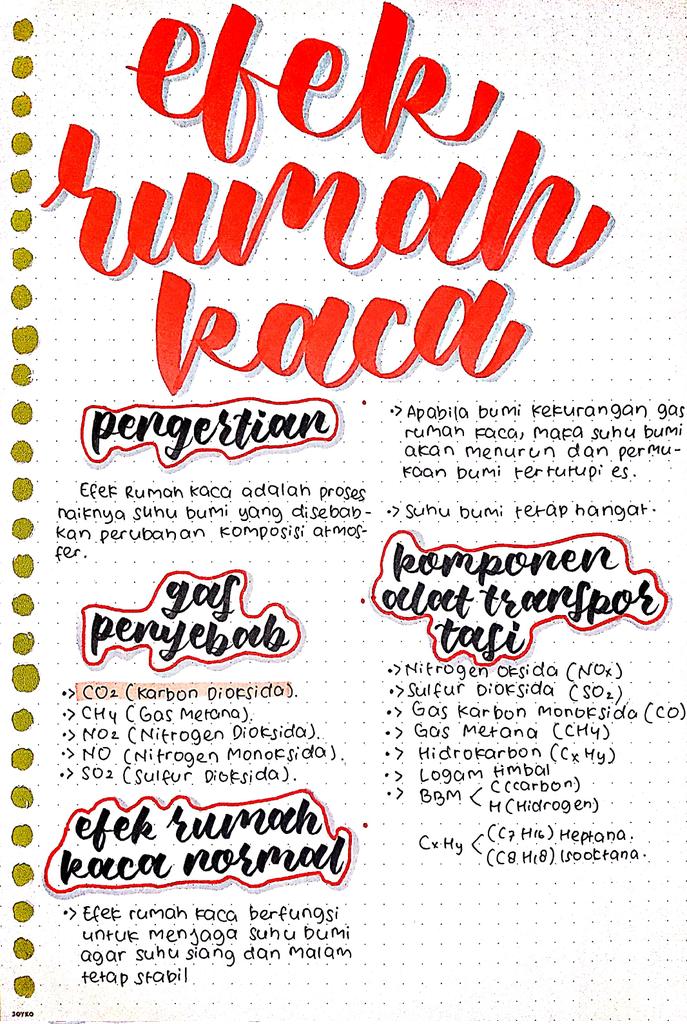 efek
rumah
kaca
pengertian
Efek Rumah Kaca adalah proses
naiknya suhu bumi yang disebab-
kan perubahan komposisi atmos-
fer.
gas
penyebab
·> CO2 (Karbon Dioksida).
·> CH4 (Gas Metana).
·> NO2 (Nitrogen Dioksida).
·> NO (Nitrogen Monoksida).
·> SO2 (Sulfur Dioksida).
efek rumah
kaca normal
·> Efek rumah kaca berfungsi
untuk menjaga suhu bumi
agar suhu siang dan malam
tetap stabil
·> Apabila bumi kekurangan gas
rumah kaca, maka suhu bumi
akan menurun dan permu-
kaan bumi tertutupi es.
·> Suhu bumi tetap hangat.
komponen
alat transpor
tasi
·> Nitrogen Oksida (NOx)
·> Sulfur Dioksida (SO2)
·> Gas Karbon Monoksida (CO)
·> Gas Metana (CH4)
·> Hidrokarbon (CxHy)
·> Logam timbal
·> BBM < C (carbon)
H (Hidrogen)
CxHy < (C7H16) Heptana.
(C8H18) Isooktana.
JOYKO